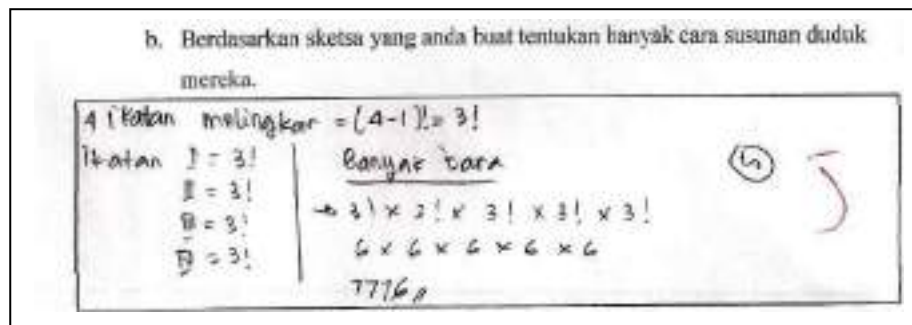 b. Berdasarkan sketsa yang anda buat tentukan banyak cara susunan duduk
mereka.
4 ikatan melingkar = (4-1)! = 3!
Ikatan I = 3!
II = 3!
III = 3!
IV = 3!
Banyak cara
→ 3! x 3! x 3! x 3! x 3!
6 x 6 x 6 x 6 x 6
7776 //
5